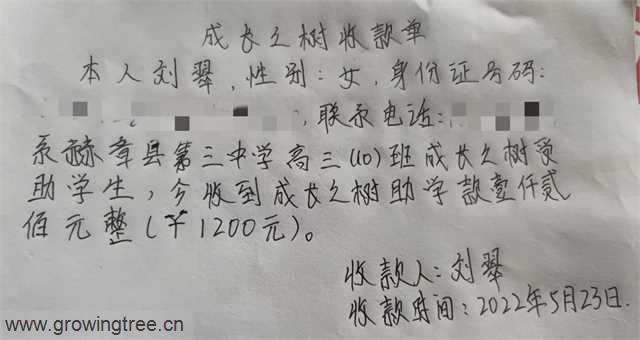 成长之树收款单
本人刘翠，性别：女，身份证号码：
，联系电话：
系赫章县第三中学高三（10）班成长之树受
助学生，今收到成长之树助学款壹仟贰
佰元整（￥1200元）。
收款人：刘翠
收款时间：2022年5月23日.
www.growingtree.cn